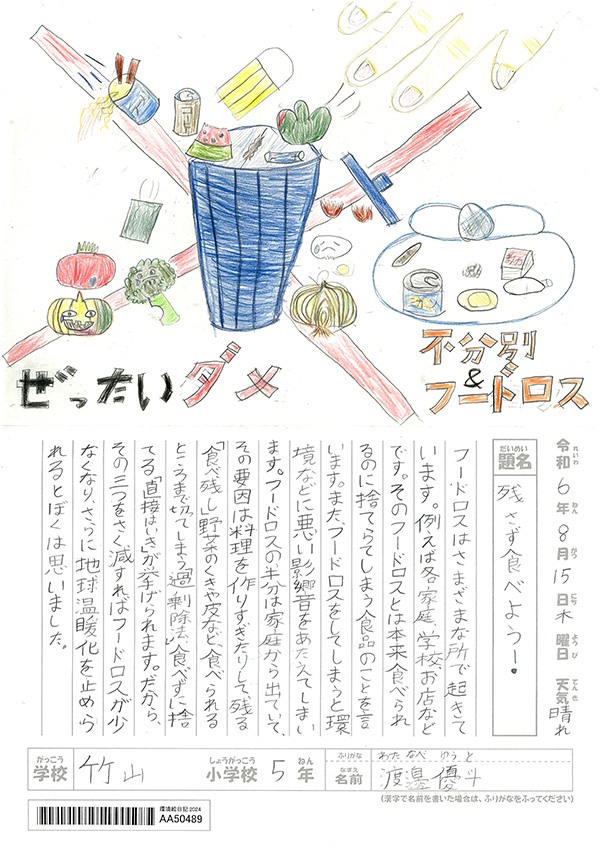 ぜったいダメ
不分別
&
フードロス
ミカン
令和6年8月15日木曜日 天気晴れ
れいわ ねん がつ にち ようび てんき
だいめい
題名
残さず食べよう!
フードロスはさまざまな所で起きて
います。例えば各家庭、学校、お店など
です。そのフードロスとは本来食べられ
るのに捨てらてしまう食品のことを言
います。また、フードロスをしてしまうと環
境などに悪い影響をあたえてしまい
ます。フードロスの半分は家庭から出ていて、
その要因は料理を作りすぎたりして残る
「食べ残し」野菜のくきや皮など食べられる
ところまで切ってしまう「過剰除去」、食べずに捨
てる「直接はいき」が挙げられます。だから、
その三つをさく減すればフードロスが少
なくなり、さらに地球温暖化を止めら
れるとぼくは思いました。
がっこう
学校
竹山
しょうがっこう
小学校
5
ねん
年
ふりがな
わたなべ ゆうと
なまえ
名前
渡邉優斗
(漢字で名前を書いた場合は、ふりがなをふってください)
環境絵日記2024
AA50489